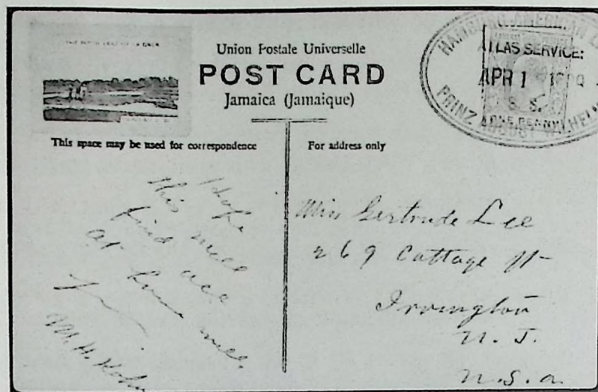 Union Postale Universelle
POST CARD
Jamaica (Jamaique)
This space may be used for correspondence
For address only
HAMBURG-AMERICAN
ATLAS SERVICE:
APR 1
S. S.
PRINZ AUGUST WILHELM
ONE PENNY
I hope
this will
find all
at home well.
Miss Gertrude Lee
269 Cottage St
Irvington
N. J.
U.S.A.